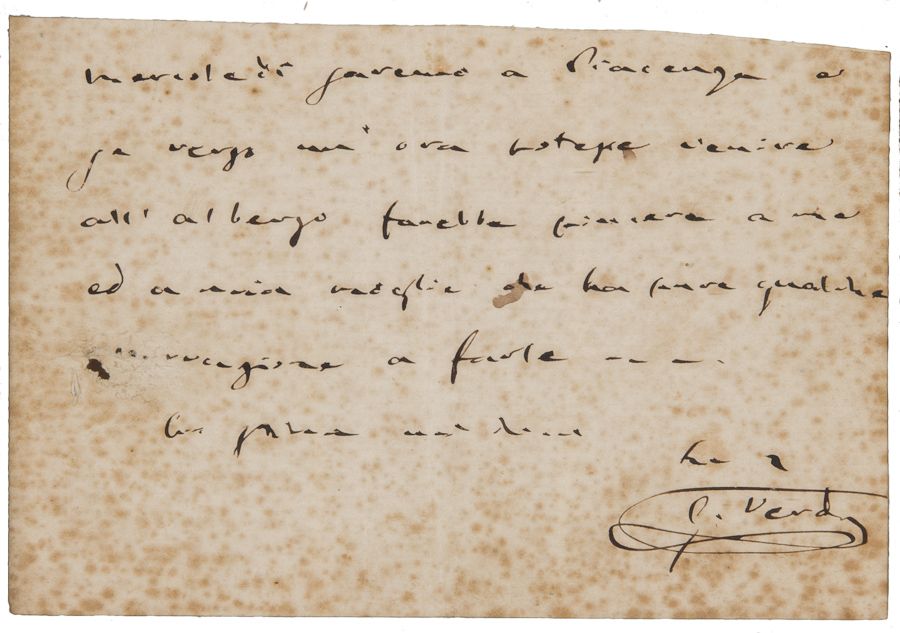 Mercoledì saremo a Piacenza e
se verso un'ora potesse venire
all'albergo farebbe piacere a me
ed a mia moglie che ha pure qualche
a farle
G. Verdi